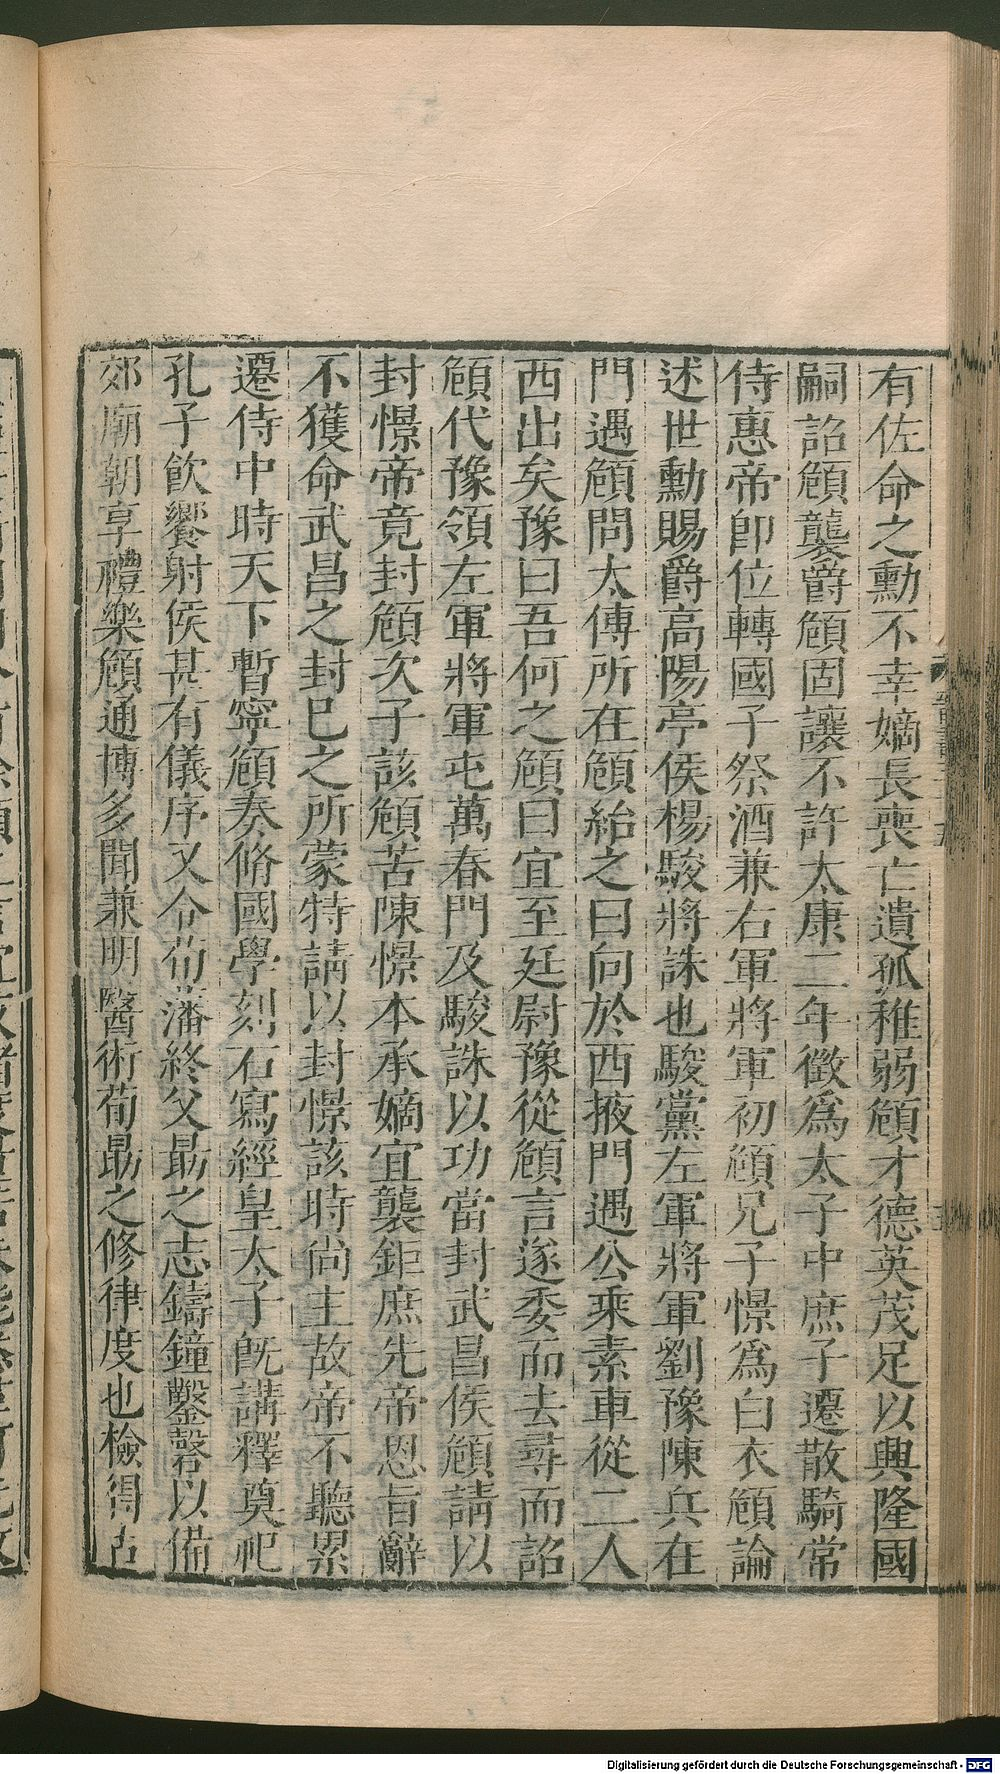 有佐命之勳不幸嫡長喪亡遺孤稚弱頠才德英茂足以興隆國
嗣詔頠襲爵頠固讓不許太康二年徵爲太子中庶子遷散騎常
侍惠帝卽位轉國子祭酒兼右軍將軍初頠兄子憬爲白衣頠論
述世勳賜爵高陽亭侯楊駿將誅也駿黨左軍將軍劉豫陳兵在
門遇頠問太傅所在頠紿之曰向於西掖門遇公乘素車從二人
西出矣豫曰吾何之頠曰宜至廷尉豫從頠言遂委而去尋而詔
頠代豫領左軍將軍屯萬春門及駿誅以功當封武昌侯頠請以
封憬帝竟封頠次子該頠苦陳憬本承嫡宜襲鉅庶先帝恩旨辭
不獲命武昌之封已之所蒙特請以封憬該時尚主故帝不聽累
遷侍中時天下暫寧頠奏脩國學刻石寫經皇太子旣講釋奠祀
孔子飲饗射侯甚有儀序又令荀藩終父勗之志鑄鐘鑿磬以備
郊廟朝享禮樂頠通博多聞兼明醫術荀勗之修律度也檢得古
Digitalisierung gefördert durch die Deutsche Forschungsgemeinschaft - DFG